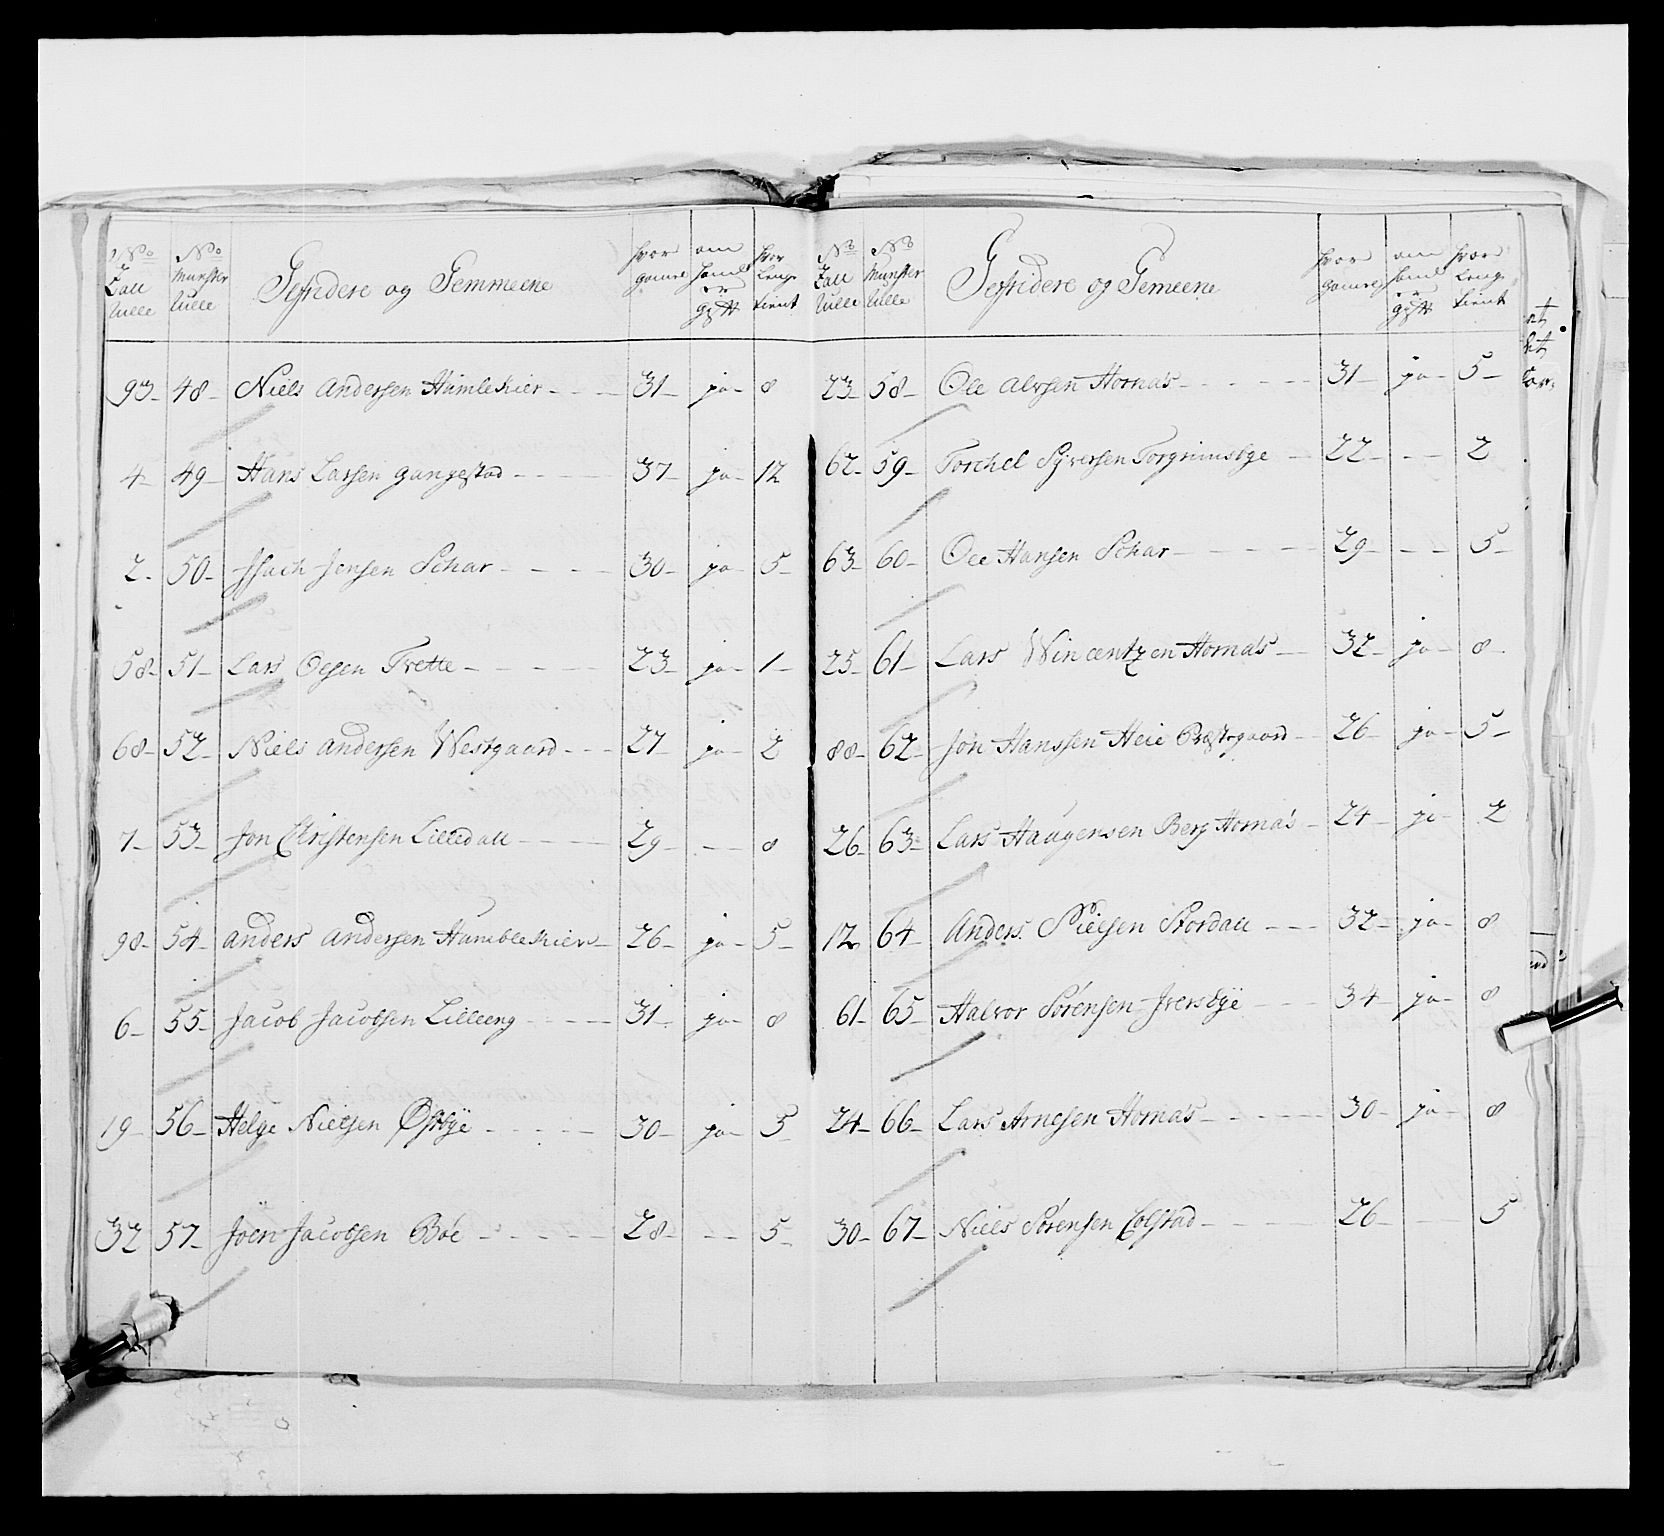 No Zall Rulle | No Munster Rulle | Gefridere og Gemmeene | hvor gamel | om hand er gift | hvor lenge tient
93 - 48 - Niels Andersen Humlekier - 31 - ja - 8
4 - 49 - Hans Larsen Gangestad - 37 - ja - 12
2 - 50 - Jsach Jensen Schar - 30 - ja - 5
58 - 51 - Lars Olsen Tvette - 23 - ja - 1
68 - 52 - Niels Andersen Westgaard - 27 - ja - 2
7 - 53 - Jon Christensen Lilledall - 29 - - 8
98 - 54 - Anders Andersen Humblekier - 26 - ja - 5
6 - 55 - Jacob Jacobsen Lilleeng - 31 - ja - 8
19 - 56 - Helge Nielsen Østbye - 30 - ja - 5
32 - 57 - Joen Jacobsen Bóe - 28 - - 5
No Zall Rulle | No Munster Rulle | Gefridere og Gemeene | hvor gamel | om hand er gift | hvor lenge tient
23 - 58 - Ole Alvsen Hornæs - 31 - ja - 5
62 - 59 - Torchel Syversen Torgrimsbye - 22 - - 2
63 - 60 - Ole Hansen Schar - 29 - - 5
25 - 61 - Lars Wincentzen Hornæs - 32 - ja - 8
88 - 62 - Jon Hanssen Heie Præstegaard - 26 - ja - 5
26 - 63 - Lars Haagensen Berg Hornæs - 24 - ja - 2
12 - 64 - Anders Nielsen Stordall - 32 - ja - 8
61 - 65 - Halvor Sórensen Jversbye - 34 - ja - 8
24 - 66 - Lars Arnesen Hornæs - 30 - ja - 8
30 - 67 - Niels Sórensen Colstad - 26 - - 5